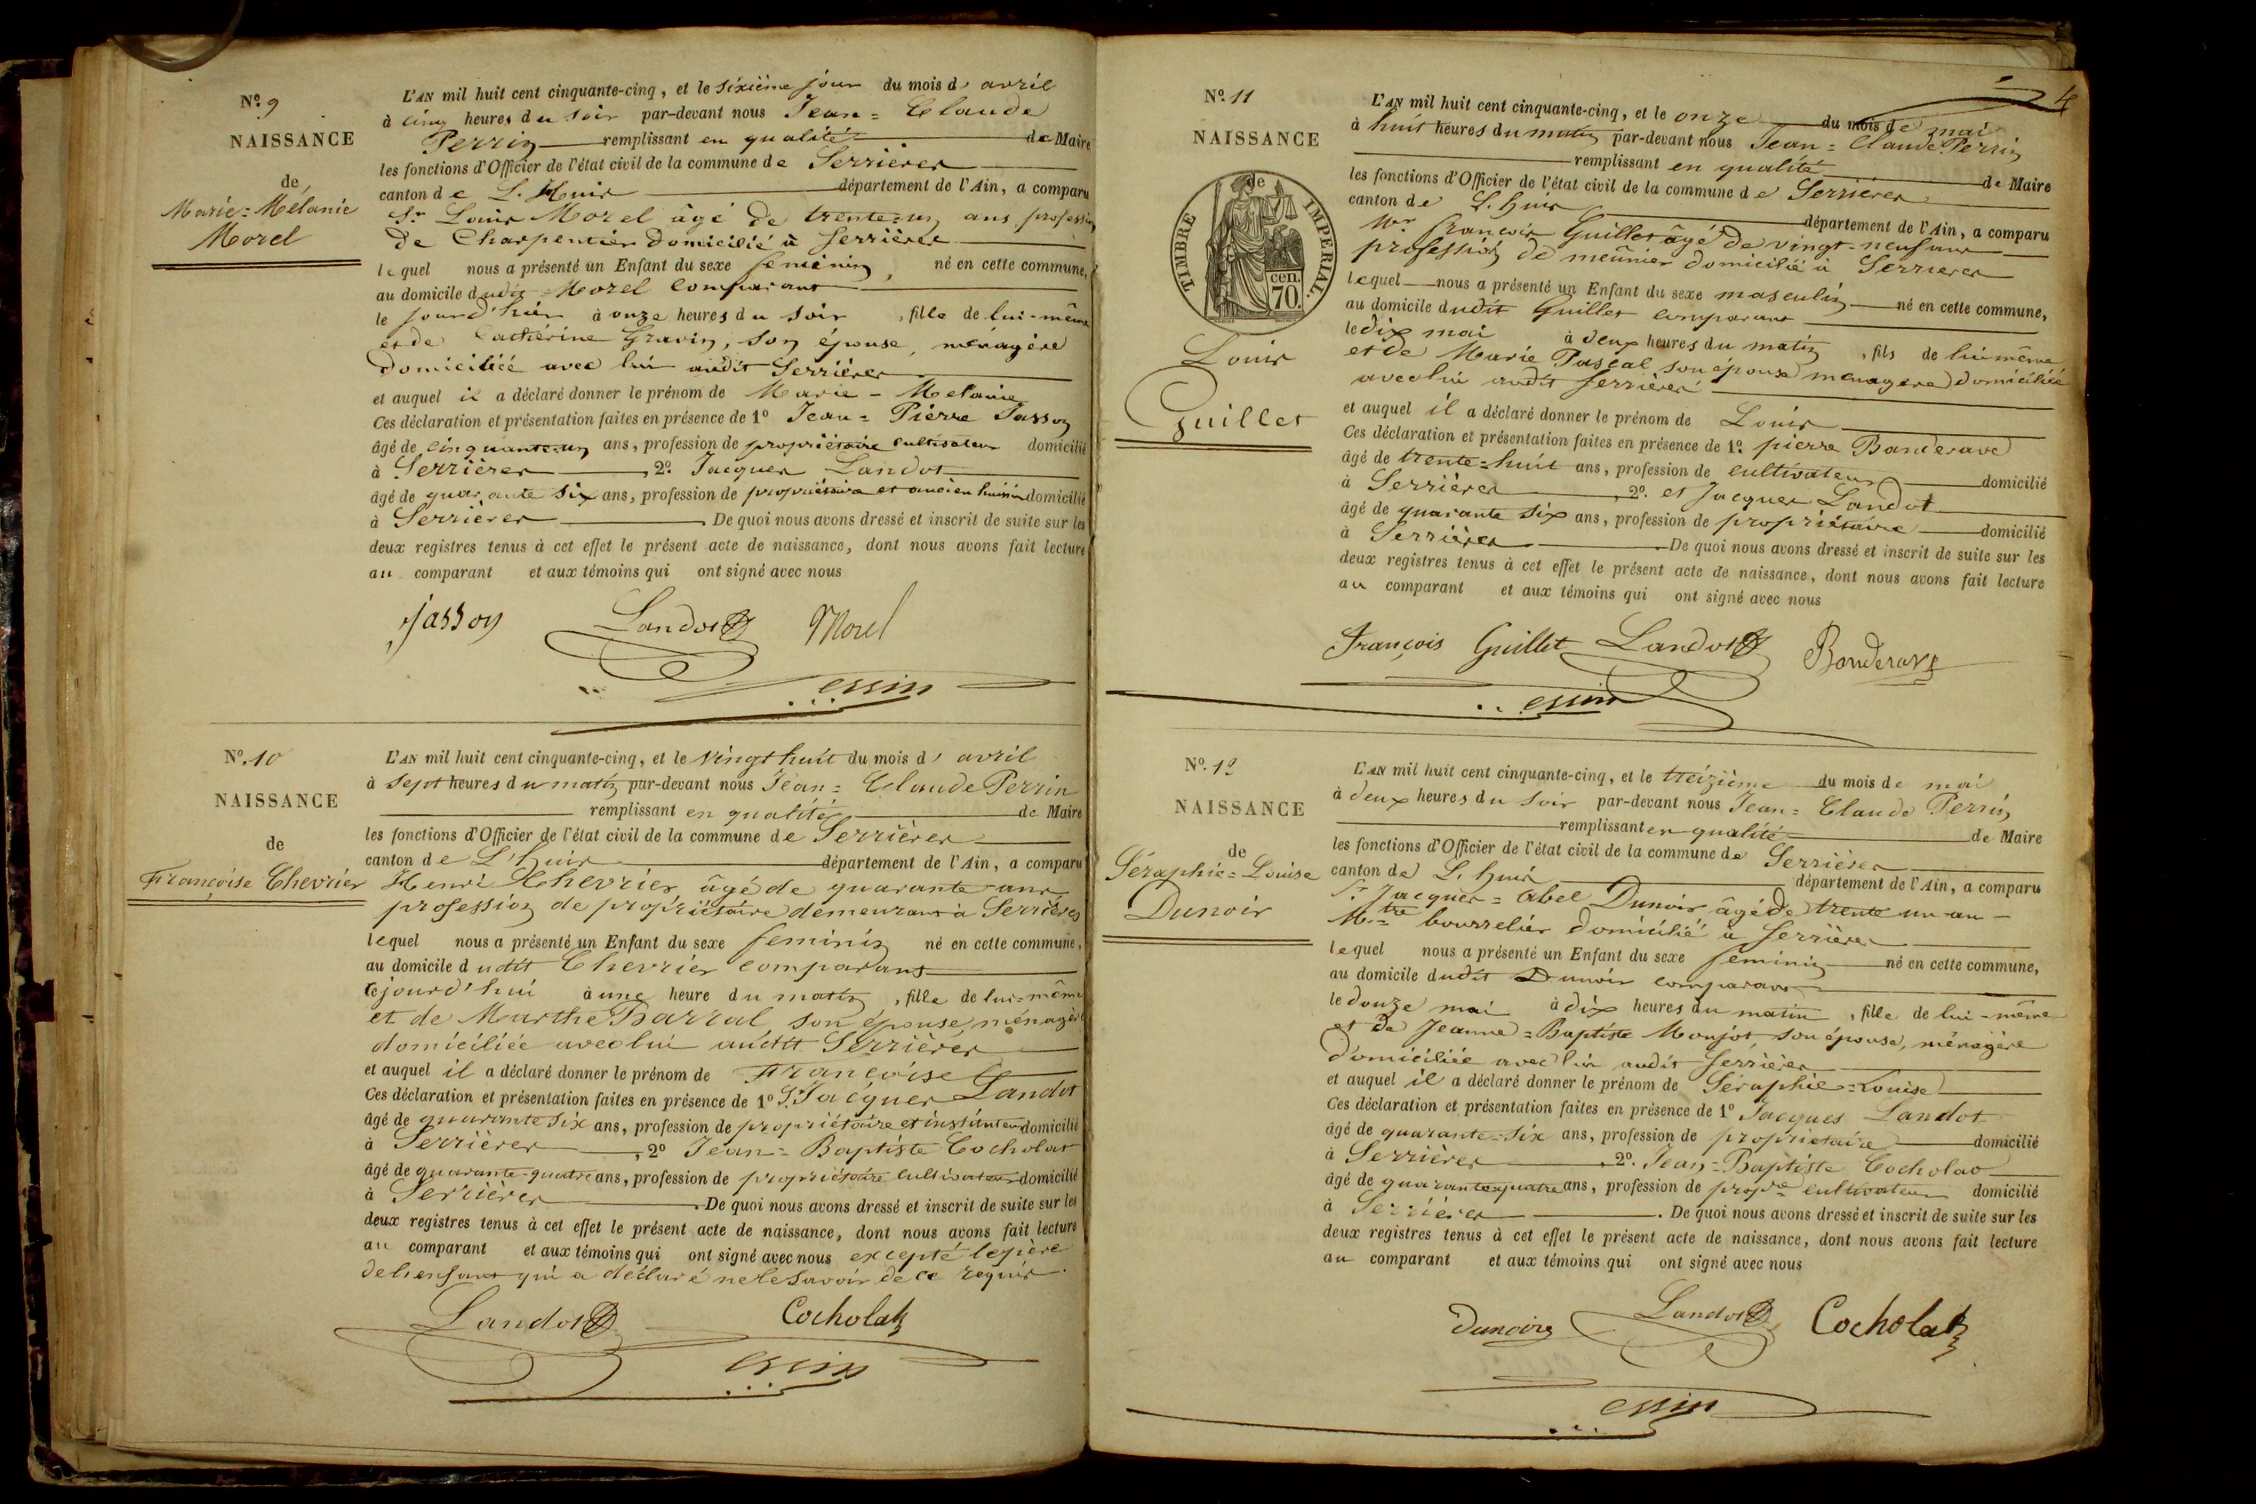 N.º 9
NAISSANCE
de
Marie=Mélanie
Morel
L'AN mil huit cent cinquante-cinq, et le sixième jour du mois d'avril
à cinq heures du soir par-devant nous Jean=Claude
Perrin remplissant en qualité de Maire
les fonctions d'Officier de l'état civil de la commune de Serrières
canton de L'huis département de l'Ain, a comparu
Sr Louis Morel âgé de trente=un ans, profession
de Charpentier domicilié à Serrières
lequel nous a présenté un Enfant du sexe féminin, né en cette commune,
au domicile dudit Morel comparant
le jour d'hier à onze heures du soir, fille de lui-même
et de Cathérine Gravin, son épouse, ménagère
domiciliée avec lui audit Serrières
et auquel il a déclaré donner le prénom de Marie-Mélanie
Ces déclaration et présentation faites en présence de 1º Jean=Pierre Jasson
âgé de cinquante-un ans, profession de propriétaire cultivateur domicilié
à Serrières, 2º. Jacques Landot
âgé de quarante six ans, profession de propriétaire et ancien huissier domicilié
à Serrières. De quoi nous avons dressé et inscrit de suite sur les
deux registres tenus à cet effet le présent acte de naissance, dont nous avons fait lecture
au comparant et aux témoins qui ont signé avec nous
Jasson Landot Morel
N.º 10
NAISSANCE
de
Françoise Chevrier
L'AN mil huit cent cinquante-cinq, et le vingt huit du mois d'avril
à sept heures du matin par-devant nous Jean=Claude Perrin
remplissant en qualité de Maire
les fonctions d'Officier de l'état civil de la commune de Serrières
canton de L'huis département de l'Ain, a comparu
Henri Chevrier âgé de quarante ans
profession de propriétaire demeurant à Serrières
lequel nous a présenté un Enfant du sexe féminin né en cette commune,
au domicile dudit Chevrier comparant
cejourd'hui à une heure du matin, fille de lui=même
et de Marthe Barral son épouse, ménagère
domiciliée avec lui audit Serrières
et auquel il a déclaré donner le prénom de Françoise
Ces déclaration et présentation faites en présence de 1º S. Jacques Landot
âgé de quarante six ans, profession de propriétaire et instituteur domicilié
à Serrières, 2º Jean=Baptiste Cocholat
âgé de quarante-quatre ans, profession de propriétaire cultivateur domicilié
à Serrières. De quoi nous avons dressé et inscrit de suite sur les
deux registres tenus à cet effet le présent acte de naissance, dont nous avons fait lecture
au comparant et aux témoins qui ont signé avec nous excepté le père
de l'enfant qui a déclaré ne le savoir de ce requis
Landot Cocholat
4
N.º 11
NAISSANCE
de
TIMBRE IMPERIAL.
cen.
70.
Louis
Guillet
L'AN mil huit cent cinquante-cinq, et le onze du mois de mai
à huit heures du matin par-devant nous Jean=Claude Perrin
remplissant en qualité de Maire
les fonctions d'Officier de l'état civil de la commune de Serrières
canton de L'huis département de l'Ain, a comparu
François Guillet âgé de vingt-neuf ans
profession de meûnier domicilié à Serrières
lequel nous a présenté un Enfant du sexe masculin né en cette commune,
au domicile dudit Guillet comparant
le dix mai à deux heures du matin, fils de lui même
et de Marie Pascal son épouse ménagère domiciliée
avec lui audit Serrières
et auquel il a déclaré donner le prénom de Louis
Ces déclaration et présentation faites en présence de 1º. pierre Banderave
âgé de trente=huit ans, profession de cultivateur domicilié
à Serrières, 2º. et Jacques Landot
âgé de quarante six ans, profession de propriétaire domicilié
à Serrières De quoi nous avons dressé et inscrit de suite sur les
deux registres tenus à cet effet le présent acte de naissance, dont nous avons fait lecture
au comparant et aux témoins qui ont signé avec nous
François Guillet Landot Banderave
N.º 12
NAISSANCE
de
Séraphie=Louise
Dunoir
L'AN mil huit cent cinquante-cinq, et le treizième du mois de mai
à deux heures du soir par-devant nous Jean=Claude Perrin
remplissant en qualité de Maire
les fonctions d'Officier de l'état civil de la commune de Serrières
canton de L'huis département de l'Ain, a comparu
Sr Jacques=Abel Dunoir âgé de trente un an
Mtre bourrelier domicilié à Serrières
lequel nous a présenté un Enfant du sexe féminin né en cette commune,
au domicile dudit Dunoir comparant
le douze mai à dix heures du matin, fille de lui-même
et de Jeanne=Baptiste Monjot, son épouse, ménagère
domiciliée avec lui audit Serrières
et auquel il a déclaré donner le prénom de Séraphie=Louise
Ces déclaration et présentation faites en présence de 1º Jacques Landot
âgé de quarante-six ans, profession de propriétaire domicilié
à Serrières, 2º. Jean=Baptiste Cocholat
âgé de quarante quatre ans, profession de propre cultivateur domicilié
à Serrières. De quoi nous avons dressé et inscrit de suite sur les
deux registres tenus à cet effet le présent acte de naissance, dont nous avons fait lecture
au comparant et aux témoins qui ont signé avec nous
Dunoir Landot Cocholat